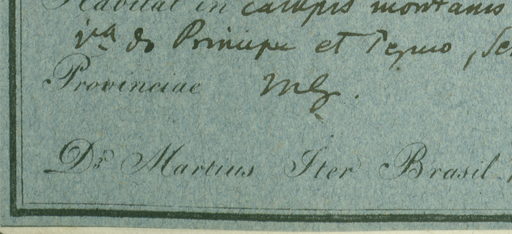 Habitat in campis montanis
Va do Principe et Tejuco, Ser
Provinciae MG.
Dr. Martius Iter Brasil.